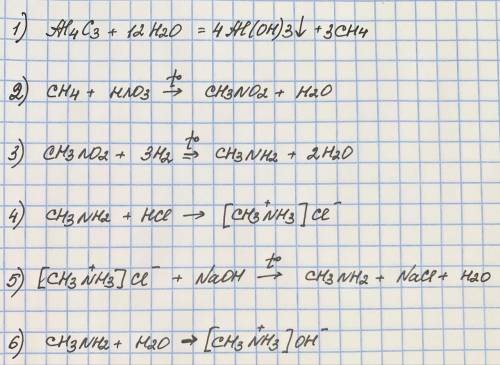 1) Al4C3 + 12H2O = 4Al(OH)3↓ + 3CH4
2) CH4 + HNO3 →t° CH3NO2 + H2O
3) CH3NO2 + 3H2 ⇒t° CH3NH2 + 2H2O
4) CH3NH2 + HCl → [CH3N⁺H3]Cl⁻
5) [CH3N⁺H3]Cl⁻ + NaOH →t° CH3NH2 + NaCl + H2O
6) CH3NH2 + H2O → [CH3N⁺H3]OH⁻